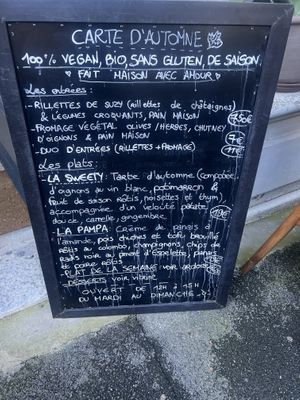 CARTE D'AUTOMNE
100% VEGAN, BIO, SANS GLUTEN, DE SAISON
♥ FAIT MAISON AVEC AMOUR ♥
Les entrées:
- RILLETTES DE SUZY (rillettes de châtaignes)
& LÉGUMES CROQUANTS, PAIN MAISON 7,50€
- FROMAGE VÉGÉTAL OLIVES/HERBES, CHUTNEY
D'OIGNONS & PAIN MAISON 7€
- DUO D'ENTRÉES (RILLETTES + FROMAGE)
Les plats:
- LA SWEETY: Tarte d'automne (compotée
d'oignons au vin blanc, potimarron &
fruit de saison rôtis, noisettes et thym)
accompagnée d'un velouté patate
douce, camelle, gingembre
- LA PAMPA: Crème de panais à
l'amande, pois chiches et tofu brouillé
rôtis au colombo, champignons, chips de
radis noir au piment d'Espelette, panais
et poire rôtis
PLAT DE LA SEMAINE voir ardoise
DESSERTS voir vitrine
OUVERT DE 12H À 15H
DU MARDI AU DIMANCHE